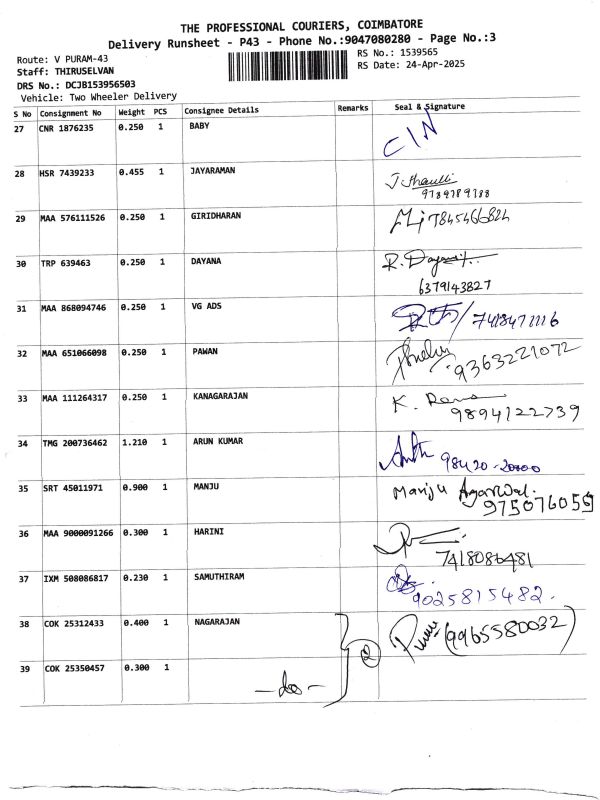 THE PROFESSIONAL COURIERS, COIMBATORE
Delivery Runsheet - P43 - Phone No.:9047080280 - Page No.:3
Route: V PURAM-43
RS No.: 1539565
Staff: THIRUSELVAN
RS Date: 24-Apr-2025
DRS No.: DCJB153956503
Vehicle: Two Wheeler Delivery
S No Consignment No Weight PCS Consignee Details Remarks Seal & Signature
27 CNR 1876235 0.250 1 BABY CIN
28 HSR 7439233 0.455 1 JAYARAMAN
9789789188
29 MAA 576111526 0.250 1 GIRIDHARAN 7845466824
30 TRP 639463 0.250 1 DAYANA R.
6379143827
31 MAA 868094746 0.250 1 VG ADS
32 MAA 651066098 0.250 1 PAWAN 9363221072
33 MAA 111264317 0.250 1 KANAGARAJAN K.
9894122739
34 TMG 200736462 1.210 1 ARUN KUMAR 98420-20000
35 SRT 45011971 0.900 1 MANJU Manju Agarwal.
975076055
36 MAA 9000091266 0.300 1 HARINI
7418086481
37 IXM 508086817 0.230 1 SAMUTHIRAM
9025815482.
38 COK 25312433 0.400 1 NAGARAJAN (9965580032)
2
39 COK 25350457 0.300 1 -do-